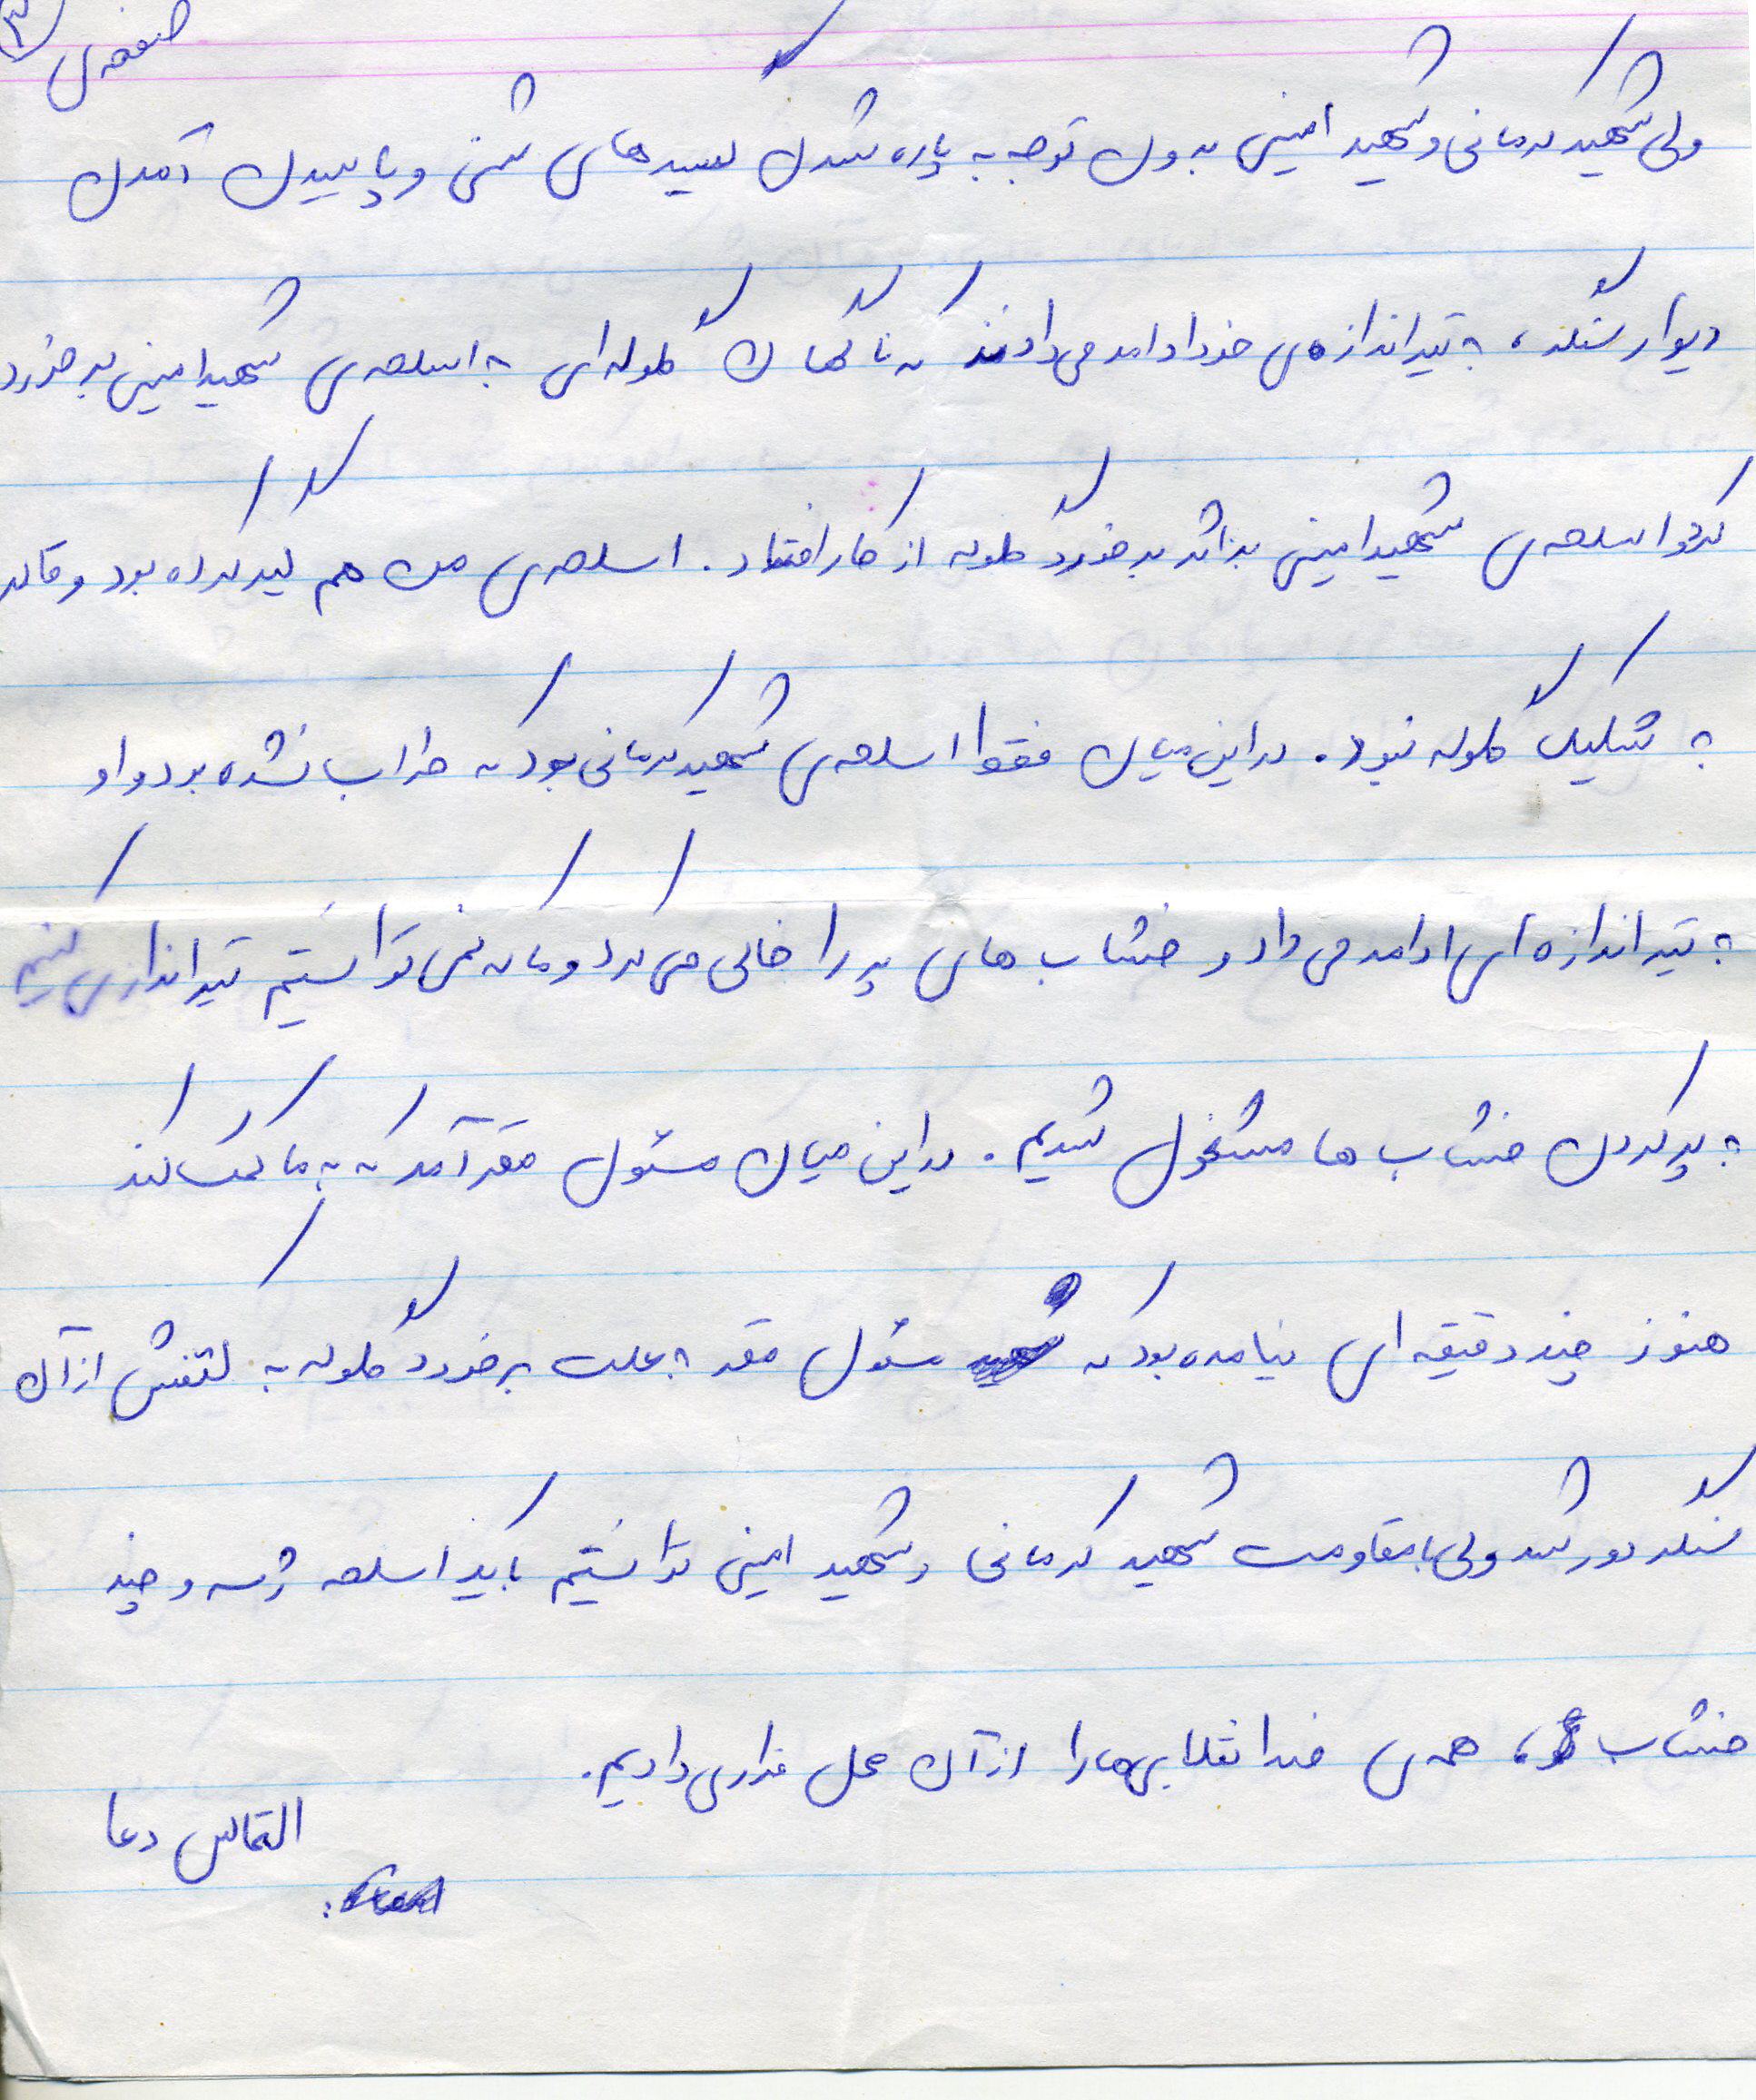 صفحه‌ی ۳
ولی شهید کرمانی و شهید امینی بدون توجه به پاره شدن کیسه‌های شنی و پایین آمدن
دیوار سنگر، به تیراندازی خود ادامه می‌دادند که ناگهان گلوله‌ای به اسلحه‌ی شهید امینی برخورد
کرد و اسلحه‌ی شهید امینی بر اثر برخورد گلوله از کار افتاد. اسلحه‌ی من هم گیر کرده بود و قادر
به شلیک گلوله نبود. در این میان فقط اسلحه‌ی شهید کرمانی بود که خراب نشده بود و او
به تیراندازی ادامه می‌داد و خشاب‌های پر را خالی می‌کرد و ما که نمی‌توانستیم تیراندازی کنیم
به پر کردن خشاب‌ها مشغول شدیم. در این میان مسئول مقر آمد که به ما کمک کند
هنوز چند دقیقه‌ای نیامده بود که مسئول مقر به علت برخورد گلوله به کتفش از آن
سنگر دور شد ولی با مقاومت شهید کرمانی و شهید امینی توانستیم با یک اسلحه ژ سه و چند
خشاب، همه‌ی ضد انقلابی‌ها را از آن محل فراری دادیم.
التماس دعا